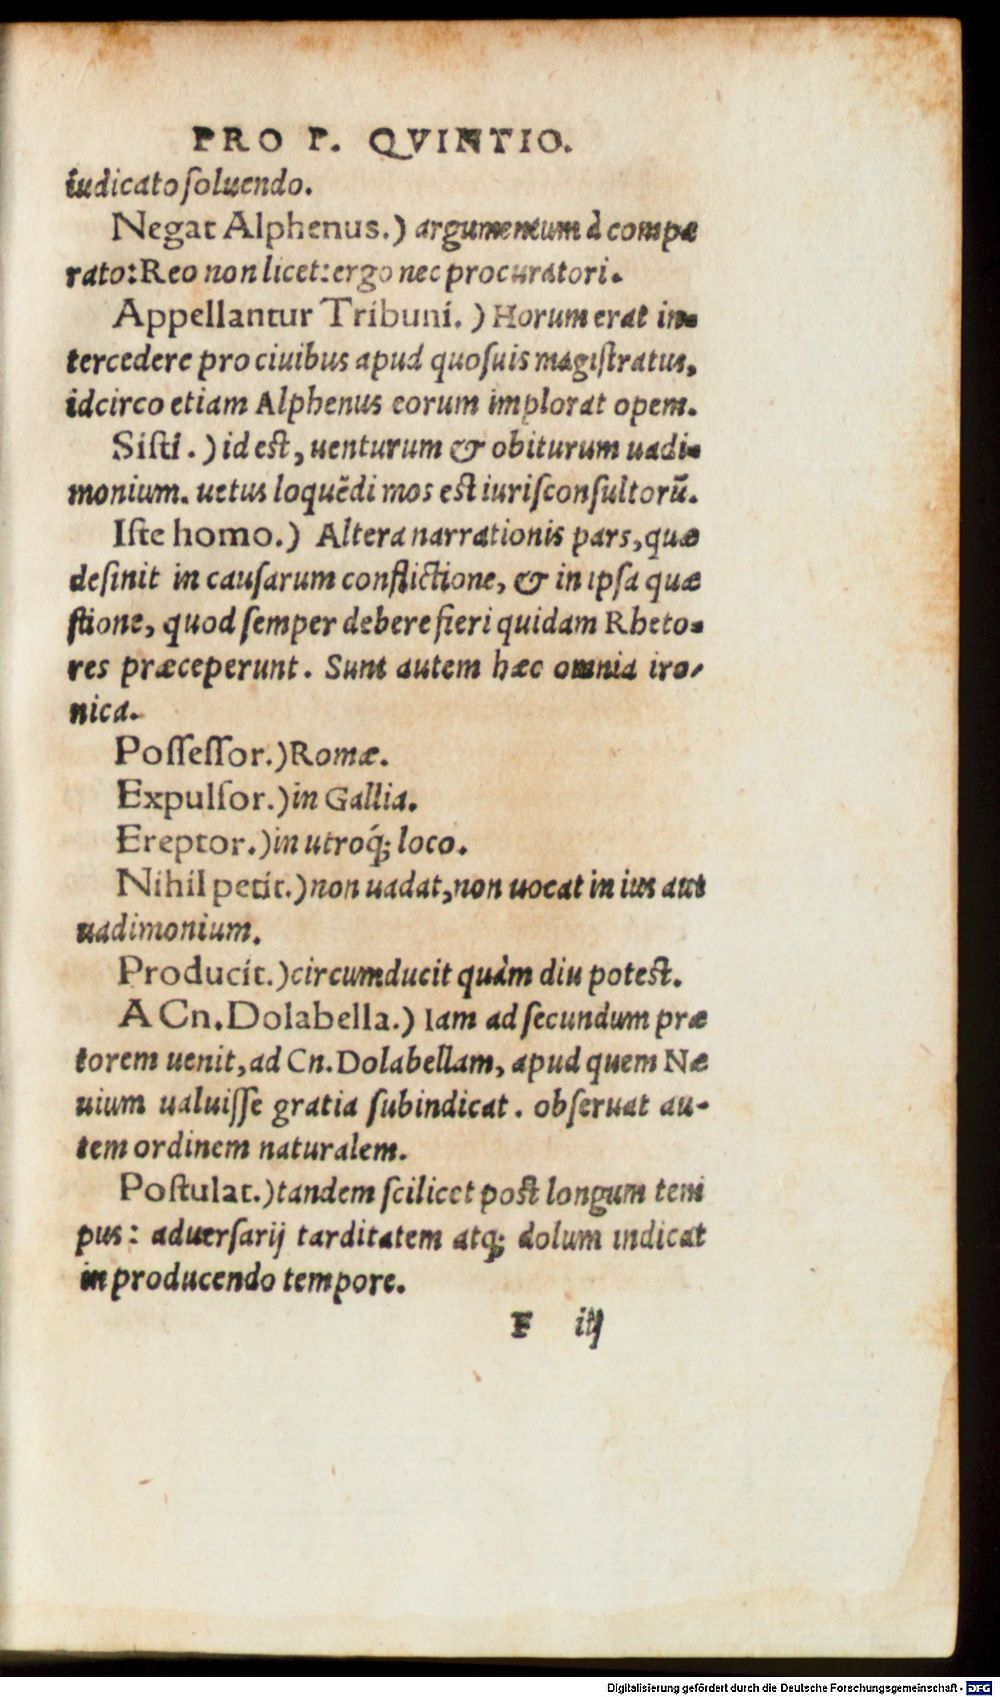 PRO P. QVINTIO.
iudicato ſoluendo.
Negat Alphenus.) argumentum à compa
rato: Reo non licet: ergo nec procuratori.
Appellantur Tribuni.) Horum erat in-
tercedere pro ciuibus apud quoſuis magiſtratus,
idcirco etiam Alphenus eorum implorat opem.
Siſti.) id eſt, uenturum & obiturum uadi-
monium. uetus loquẽdi mos eſt iuriſconſultorũ.
Iſte homo.) Altera narrationis pars, quæ
deſinit in cauſarum conflictione, & in ipſa quæ
ſtione, quod ſemper debere fieri quidam Rheto-
res præceperunt. Sunt autem hæc omnia iro-
nica.
Poſſeſſor.) Romæ.
Expulſor.) in Gallia.
Ereptor.) in utroq́; loco.
Nihil petit.) non uadat, non uocat in ius aut
uadimonium.
Producit.) circumducit quàm diu poteſt.
A Cn. Dolabella.) Iam ad ſecundum præ
torem uenit, ad Cn. Dolabellam, apud quem Næ
uium ualuiſſe gratia ſubindicat. obſeruat au-
tem ordinem naturalem.
Poſtulat.) tandem ſcilicet poſt longum tem
pus: aduerſarij tarditatem atq; dolum indicat
in producendo tempore.
F iij
Digitalisierung gefördert durch die Deutsche Forschungsgemeinschaft - DFG